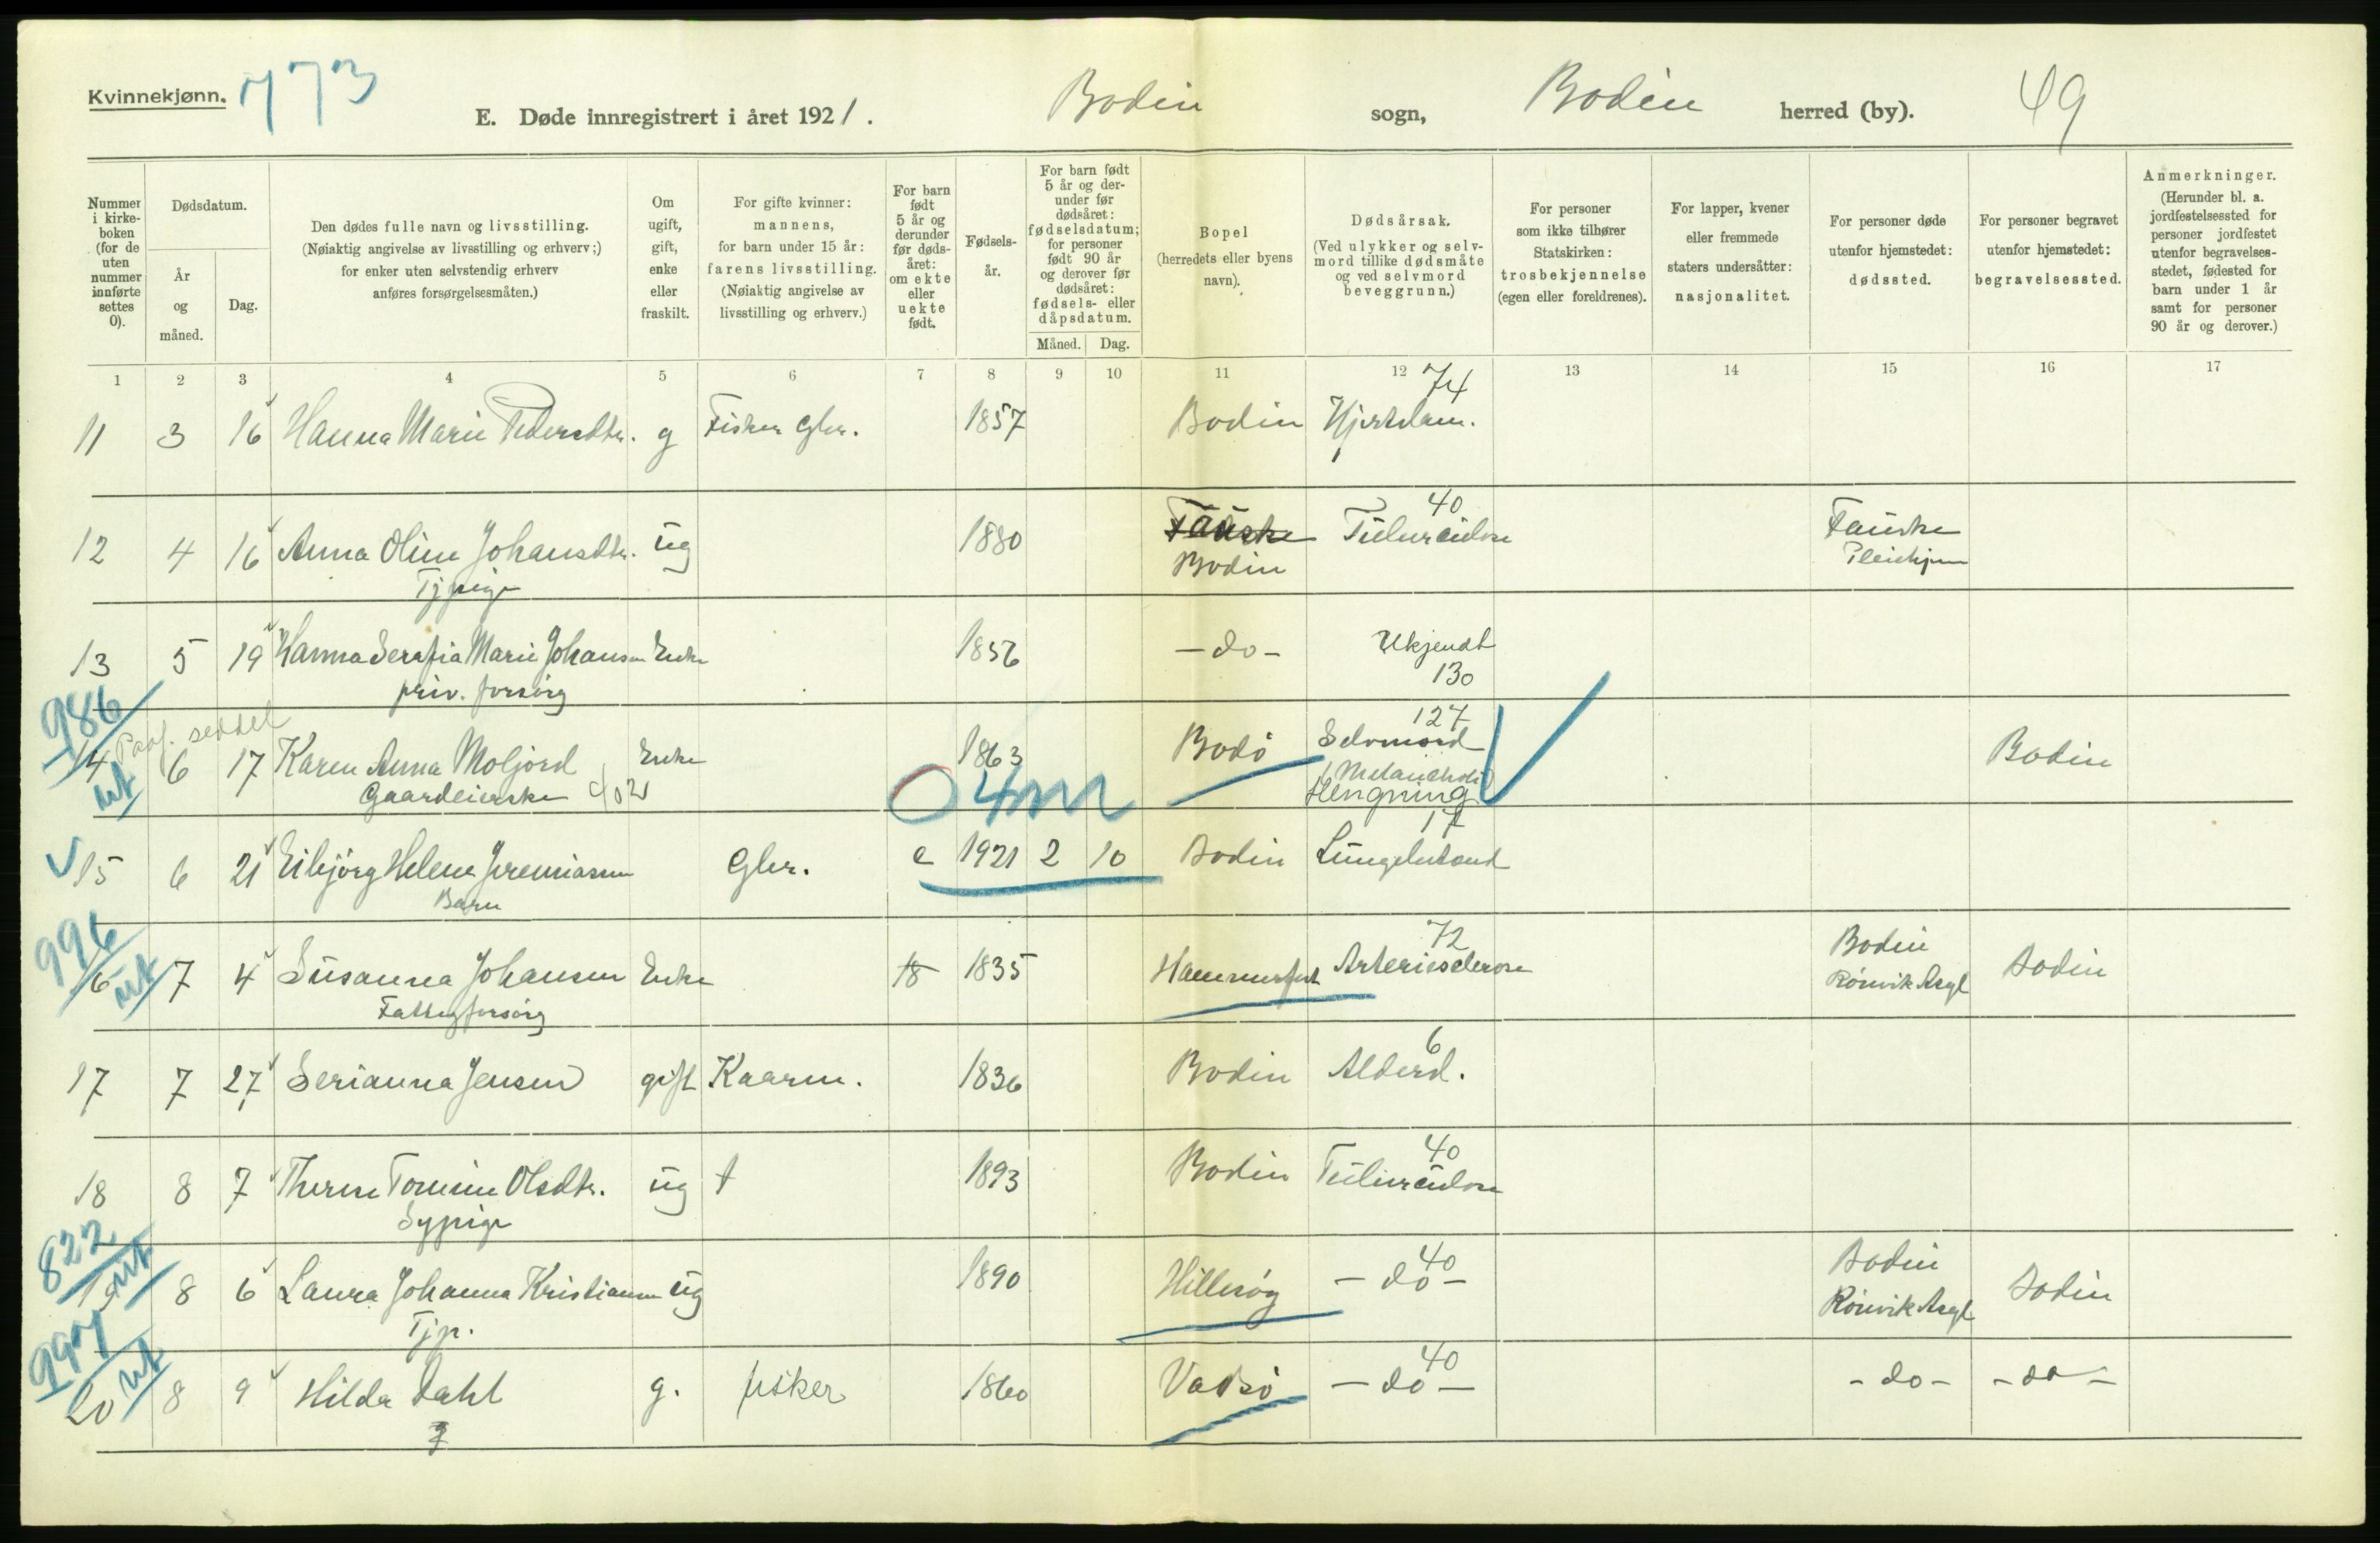 Kvinnekjønn. 773
E. Døde innregistrert i året 1921. Bodin sogn, Bodin herred (by). 49
Nummer i kirkeboken (for de uten nummer innførte settes 0).
Dødsdatum.
År og måned.
Dag.
Den dødes fulle navn og livsstilling. (Nøiaktig angivelse av livsstilling og erhverv;) for enker uten selvstendig erhverv anføres forsørgelsesmåten.)
Om ugift, gift, enke eller fraskilt.
For gifte kvinner: mannens, for barn under 15 år: farens livsstilling. (Nøiaktig angivelse av livsstilling og erhverv.)
For barn født 5 år og derunder før dødsåret: om ekte eller uekte født.
Fødselsår.
For barn født 5 år og derunder før dødsåret: fødselsdatum; for personer født 90 år og derover før dødsåret: fødsels- eller dåpsdatum.
Måned. Dag.
Bopel (herredets eller byens navn).
Dødsårsak. (Ved ulykker og selvmord tillike dødsmåte og ved selvmord beveggrunn.)
For personer som ikke tilhører Statskirken: trosbekjennelse (egen eller foreldrenes).
For lapper, kvener eller fremmede staters undersåtter: nasjonalitet.
For personer døde utenfor hjemstedet: dødssted.
For personer begravet utenfor hjemstedet: begravelsessted.
Anmerkninger. (Herunder bl. a. jordfestelsessted for personer jordfestet utenfor begravelsesstedet, fødested for barn under 1 år samt for personer 90 år og derover.)
1 2 3 4 5 6 7 8 9 10 11 12 13 14 15 16 17
74
11 3 16 Hanna Marie Pedersdtr. g Fisker gbr. 1857 Bodin Hjertelam.
40
12 4 16 Anna Oline Johansdtr. ug 1880 Fauske Tuberculose Fauske
Tjpige Bodin Pleiehjem
13 5 19 Hanna Serafia Marie Johansen Enke 1856 -do- Ukjendt
priv. forsørg 130
986 seddel 127
14 6 17 Karen Anna Moljord Enke 1863 Bodø Selvmord Bodin
ut Gaardeierske 04m Melancholi
Hengning
17
15 6 21 Eibjørg Helene Jeremiassen gbr. e 1921 2 10 Bodin Lungebetænd
Barn
996 72
16 ut 7 4 Susanna Johansen Enke 18 1835 Hammerfest Arteriesclerose Bodin Bodin
Fattigforsørg Rønvik Asyl
6
17 7 27 Serianna Jensen gift Kaarm. 1836 Bodin Alderd.
40
18 8 7 Therese Tomine Olsdtr. ug t 1893 Bodin Tuberculose
Sypige
822 40
19 ut 8 6 Laura Johanna Kristiansen ug 1890 Hillesøy -do- Bodin Bodin
Tjp. Rønvik Asyl
997 40
20 ut 8 9 Hilda Dahl g. fisker 1860 Vadsø -do- -do- -do-